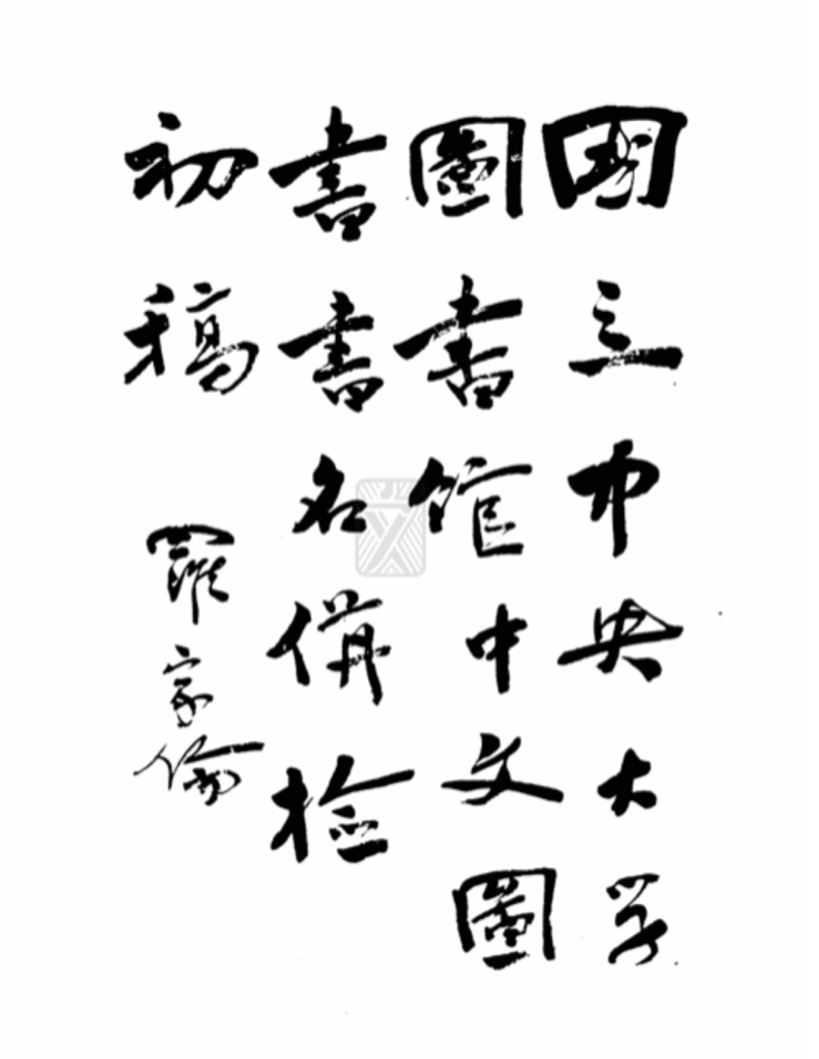 國立中央大学
圖書館中文圖
書書名備檢
初稿
羅家倫